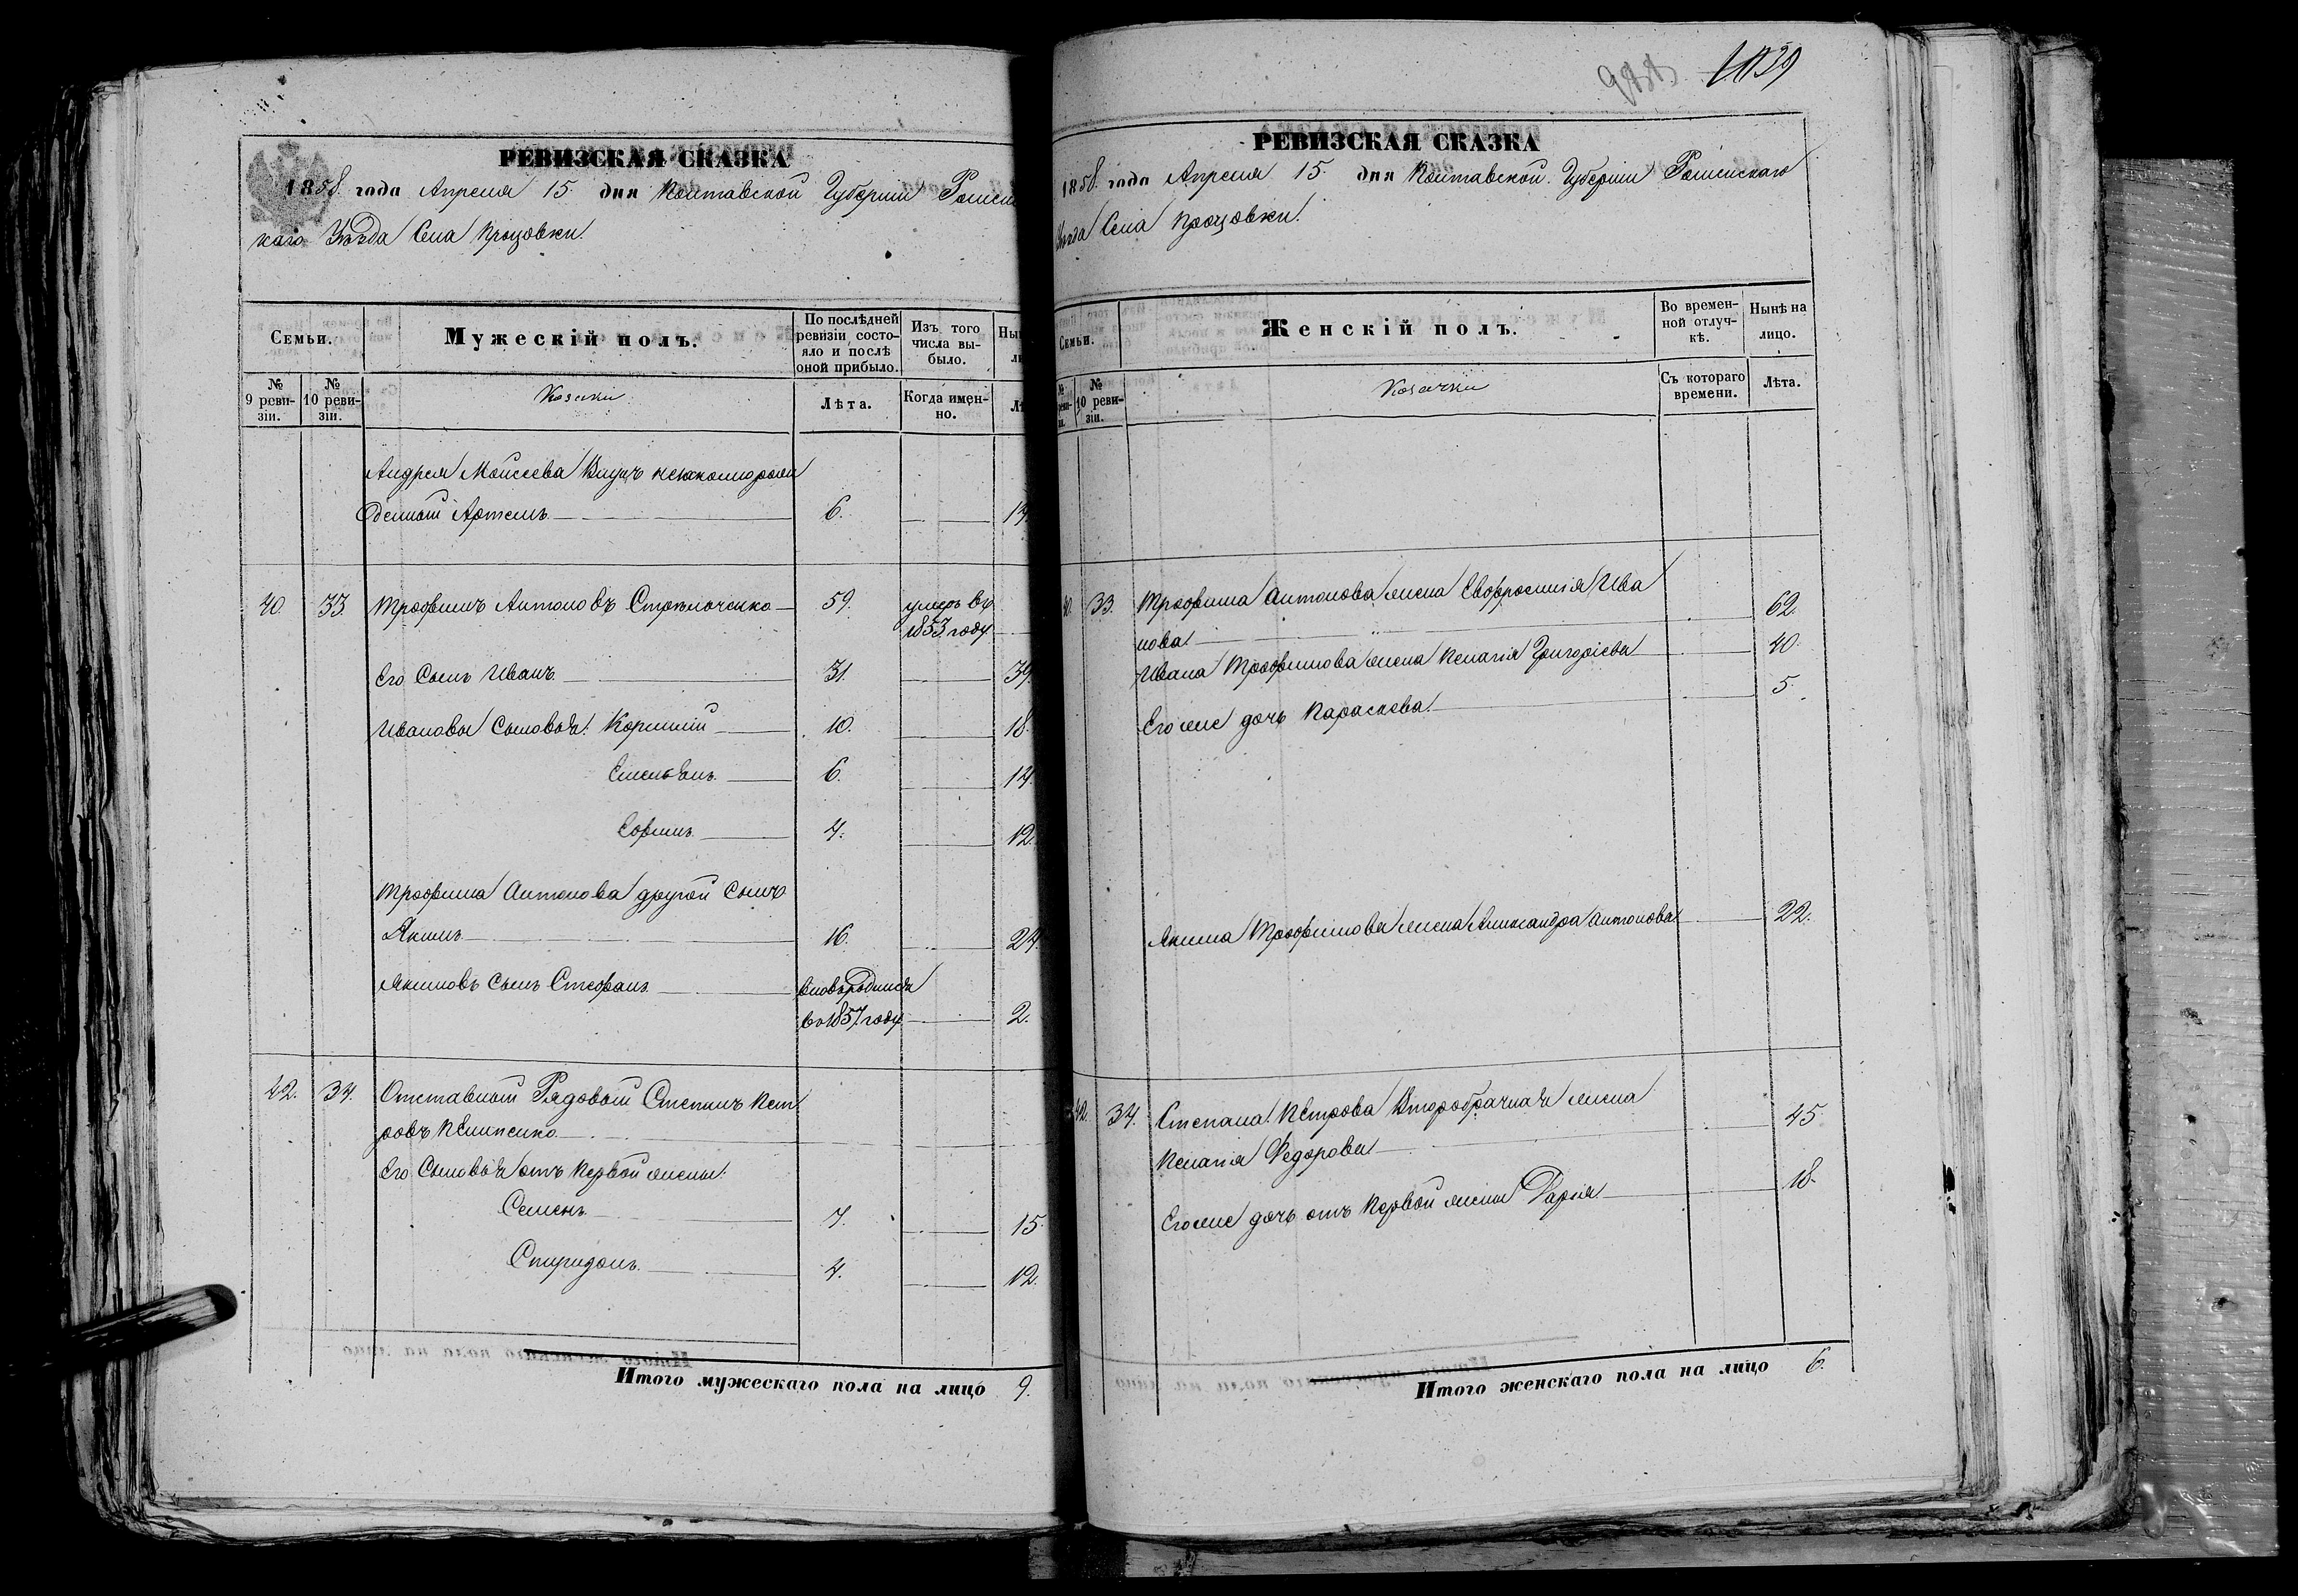 РЕВИЗСКАЯ СКАЗКА
1858 года Апреля 15 дня Полтавской Губернии Роменс
каго Уезда Села Процовки.
Семьи.
Мужескій полъ.
По послѣдней ревизіи состояло и послѣ оной прибыло.
Изъ того числа выбыло.
№ 9 ревизіи.
№ 10 ревизіи.
Козаки
Лѣта.
Когда именно.
Андрея Моисеева внукъ
Артемъ 6. 14
40 33. Трофимъ Антоновъ Стрельченко 59. умеръ въ
1853 году
Его Сынъ Иванъ 31. 39.
Ивановы Сыновья: Корнилій 10. 18.
Емельянъ 6. 14.
Ефимъ 4. 12.
Трофима Антонова другой Сынъ
Якимъ 16. 24.
Якимовъ Сынъ Стефанъ вновьродился
во 1857 году 2.
42. 34. Отставной Рядовой Степанъ Пет
ровъ
Его Сыновья отъ первой жены:
Семенъ 7. 15.
Спиридонъ 4. 12.
Итого мужескаго пола на лицо 9.
1039
РЕВИЗСКАЯ СКАЗКА
1858 года Апреля 15 дня Полтавской Губерніи Роменскаго
Уезда Села Процовки.
Семьи.
Женскій полъ.
Во временной отлучкѣ.
Нынѣ на лицо.
№ 10 ревизіи.
Козачки
Съ котораго времени.
Лѣта.
40. 33. Трофима Антонова жена Евфросинія Ива
нова 62.
Ивана Трофимова жена Пелагія Григоріева 40.
Его же дочь Параскева 5.
Якима Трофимова жена Александра Антонова 22.
42. 34. Степана Петрова Второбрачная жена
Пелагія Федорова 45.
Его же дочь отъ первой жены Дарія 18.
Итого женскаго пола на лицо 6.